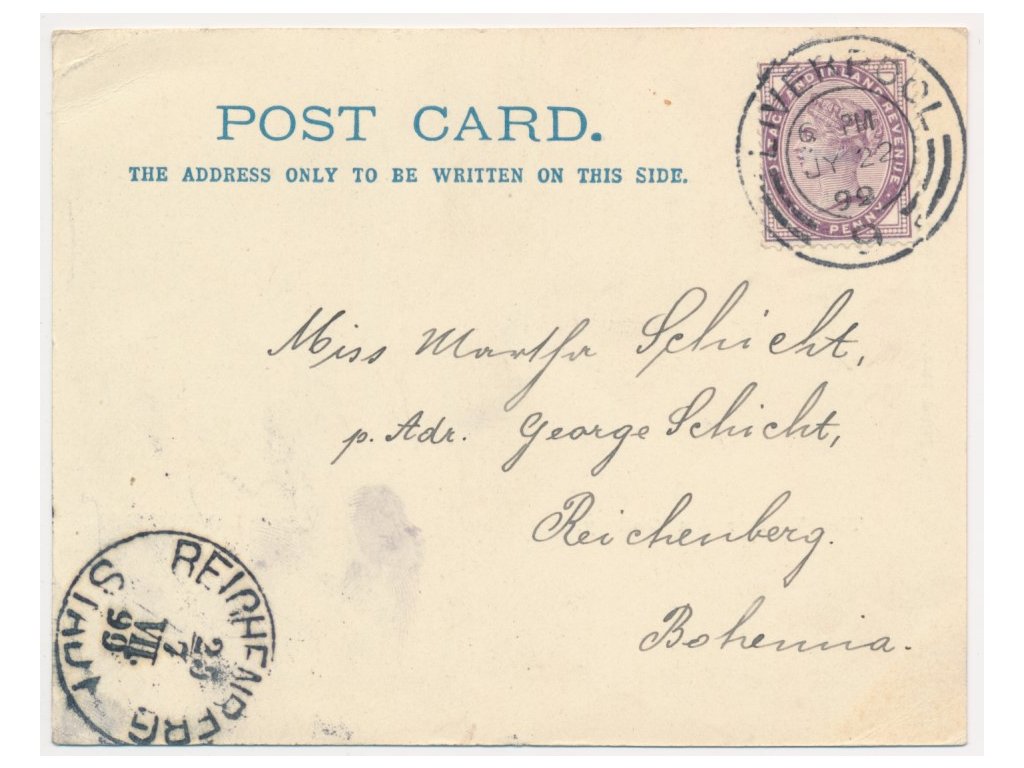 POST CARD.
THE ADDRESS ONLY TO BE WRITTEN ON THIS SIDE.
LIVERPOOL
6 PM
JY 22
99
POSTAGE AND INLAND REVENUE
PENNY
Miss Martha Schicht,
p. Adr. George Schicht,
Reichenberg.
Bohemia.
REICHENBERG STADT
25
7
VII.
99